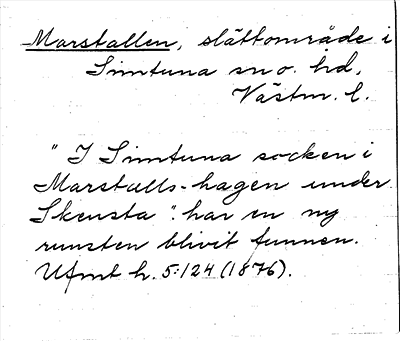 Marstallen, slåttområde i
Simtuna sn o. hd,
Västm. l.
"I Simtuna socken i
Marstalls-hagen under
Skensta". har en ny
runsten blivit funnen.
Ufmt h. 5:124 (1876).